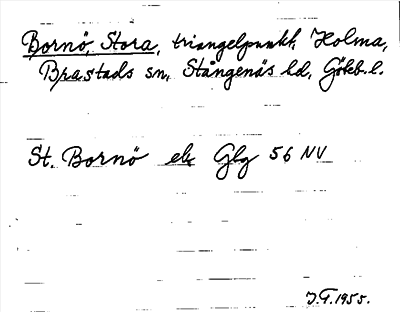 Bornö, Stora, triangelpunkt, Holma,
Brastads sn, Stångenäs hd, Göteb. l.
St. Bornö ek Glg 56 NV
J.G. 1955.